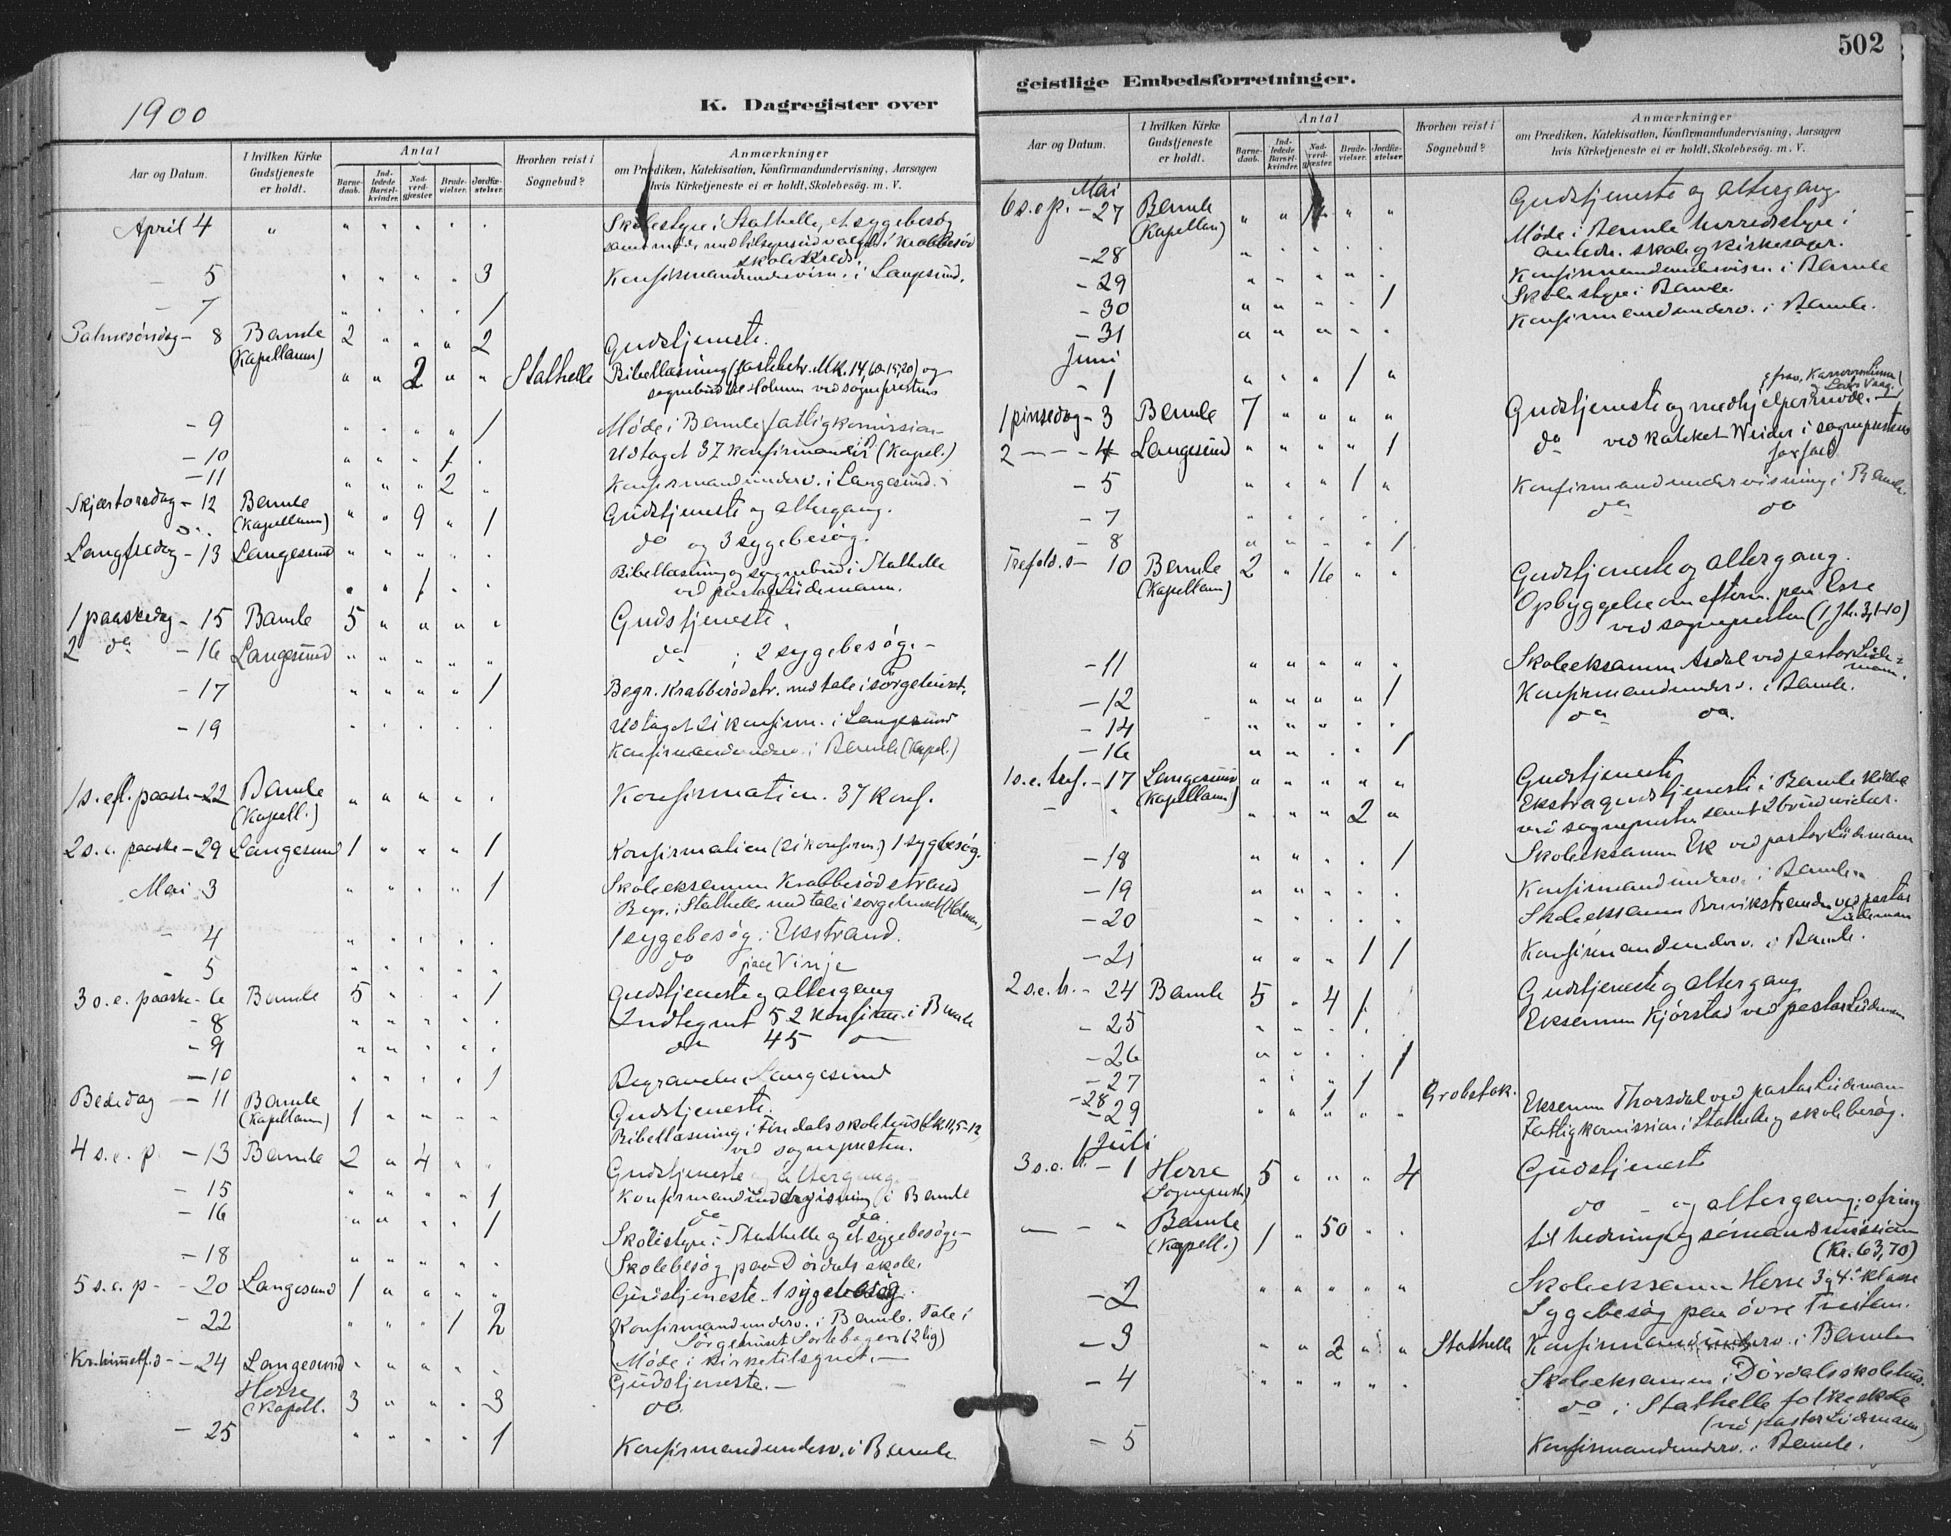 502
1900
K. Dagregister over
geistlige Embedsforretninger.
Aar og Datum.
I hvilken Kirke Gudstjeneste er holdt.
Antal
Barne-daab.
Ind-ledede Barsel-kvinder.
Nad-verd-gjester
Brude-vielser.
Jordfæ-stelser.
Hvorhen reist i Sognebud?
Anmærkninger
om Prædiken, Katekisation, Konfirmandundervisning, Aarsagen
hvis Kirketjeneste ei er holdt, Skolebesøg. m. V.
April 4 " Skolestyre i Stathelle, et sygebesøg
samt møde med tilsynsudvalget i Krabberød
skolekreds.
- 5 3 Konfirmandundervisn. i Langesund.
- 7 1
Palmesøndag - 8 Bamle 2 2 Gudstjeneste.
(Kapellanen) 2 Stathelle Bibellæsning (fastetekstr. Mk. 14, 15,20) og
sognebud til Holmen ved sognepresten
- 9 1 Møde i Bamle fattigkomission
- 10 1 Udtaget 37 konfirmander (Kapel.)
- 11 2 Konfirmandunderv. i Langesund.
Skjærtorsdag - 12 Bamle 9 1 Gudstjeneste og altergang.
(Kapellanen)
Langfredag - 13 Langesund do og 3 sygebesøg.
1 Bibellæsning og sognebud i Stathelle
ved pastor Lüdemann.
1 paaskedag - 15 Bamle 5 Gudstjeneste.
2 do - 16 Langesund do ; 2 sygebesøg. -
- 17 1 Begr. Krabberødstr. med tale i sørgehuset.
- 19 Udtaget 21 konfirm. i Langesund
Konfirmandunderv. i Bamle (Kapel.)
1 s. eft. paaske - 22 Bamle Konfirmation. 37 konf.
(Kapell.)
2 s. e. paaske - 29 Langesund 1 1 Konfirmation (21 konfirm.) 1 sygebesøg.
Mai 3 1 Skoleeksamen Krabberødstrand
Begr. i Stathelle med tale i sørgehuset (Holmen)
- 4 1 sygebesøg i Ekstrand.
- 5 do paa Vinje
3 s. e. paaske - 6 Bamle 5 1 Gudstjeneste og altergang
- 8 Indtegnet 52 konfirm. i Bamle
- 9 do 45 do
- 10 1 Begravelse Langesund
Bededag - 11 Bamle 1 Gudstjeneste.
(Kapellanen) Bibellæsning i Findals skolehus (Lk 11,5-13)
ved sognepresten.
4 s. e. p. - 13 Bamle 2 4 Gudstjeneste og altergang.
- 15 1 Konfirmandundervisning i Bamle
- 16 1 do do
Skolestyre i Stathelle og et sygebesøg. -
- 18 Skolebesøg paa Dørdals skole.
5 s. e. p. - 20 Langesund 1 Gudstjeneste. 1 sygebesøg.
- 22 1 2 Konfirmandunderv. i Bamle. Tale i
Sørgehuset Sortebogen (2 lig)
Møde i kirketilsynet. -
Kr. himmelf.d. - 24 Langesund Gudstjeneste. -
Herre 3 3 do.
(Kapell.
- 25 1 Konfirmandunderv. i Bamle
Aar og Datum.
I hvilken Kirke Gudstjeneste er holdt.
Antal
Barne-daab.
Ind-ledede Barsel-kvinder.
Nad-verd-gjester
Brude-vielser.
Jordfæ-stelser.
Hvorhen reist i Sognebud?
Anmærkninger
om Prædiken, Katekisation, Konfirmandundervisning, Aarsagen
hvis Kirketjeneste ei er holdt, Skolebesøg. m. V.
Mai
6 s. e. p. - 27 Bamle Gudstjeneste og altergang.
(Kapellan)
- 28 Møde i Bamle herredsstyre i
anledn. skole og kirkesager.
- 29 Konfirmandundervisn. i Bamle
- 30 1 Skolestyre i Bamle.
- 31 Konfirmandunderv. i Bamle.
Juni
- 1 1
1 pinsedag - 3 Bamle 7 Gudstjeneste og medhjelpermøde.
2 - - - 4 Langesund 1 do ved kateket Weider i sogneprestens
forfald
- 5 1 Konfirmandundervisning i Bamle.
- 7 do do
- 8 1
Trefold. s - 10 Bamle 2 16 Gudstjeneste og altergang.
(Kapellanen) Opbyggelse om efterm. paa Esse
ved sognepresten (1 Jh. 3,1-10)
- 11 Skoleeksamen Asdal ved pastor Lüde-
mann.
- 12 1 Konfirmandunderv. i Bamle.
- 14 do do.
- 16 1
1 s. e. tref. - 17 Langesund Gudstjeneste
(Kapellanen) 2 Ekstragudstjeneste i Bamle kirke
ved sognepresten samt 2 brudevielser.
- 18 1 Skoleeksamen Ek ved pastor Lüdemann
- 19 Konfirmandunderv. i Bamle.
- 20 Skoleeksamen Brevikstranden ved pastor
Lüdemann
- 21 1 1 Konfirmandunderv. i Bamle.
2 s. e. tr. - 24 Bamle 5 4 1 Gudstjeneste og altergang
- 25 1 Eksamen Kjørstad ved pastor Lüdemann
- 26 1
- 27 1
- 28 1 Grobstok. Eksamen Thorsdal ved pastor Lüdemann
- 29 Fattigkomission i Stathelle og skolebesøg.
Juli
3 s. e. tr. - 1 Herre 5 4 Gudstjeneste
(Sognepresten)
- - " Bamle 1 50 do - og altergang; ofring
(Kapell.) til hedning og sømandsmission
(Kr. 63,70)
- 2 Skoleeksamen Herre 3 og 4 klasse
Sygebesøg paa øvre
- 3 2 Stathelle Konfirmandunderv. i Bamle
- 4 Skoleeksamen i Dørdals skolehus.
do i Stathelle folkeskole
(ved pastor Lüdemann)
- 5 Konfirmandunderv. i Bamle.